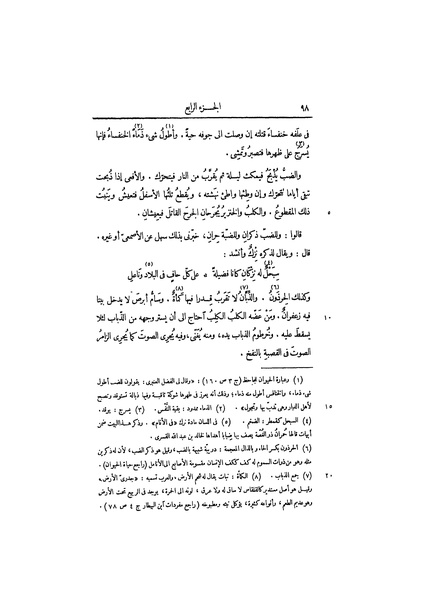 ٩٨ الجزء الرابع
فى علفه خنفساء قتلته إن وصلت الى جوفه حية. وأطول شىء ذماء الخنفساء فإنها
يسرج على ظهرها فتصبر وتمشى.
والضب يذبح فيمكث ليلة ثم يقرب من النار فيتحرك. والأفعى إذا ذبحت
تبقى أياما تتحرك وإن وطئها واطئ نهشته، ويقطع ثلثها الأسفل فتعيش وينبت
٥ ذلك المقطوع. والكلب والخنزير يجرحان الجرح القاتل فيعيشان.
قالوا: وللضب ذكران وللضبة حران، خبرنى بذلك سهل عن الأصمعى أو غيره.
قال: ويقال لذكره نزك وأنشد:
سبحل له نزكان كانا فضيلة * على كل حاف فى البلاد وناعل
وكذلك الحرذون. والذبان لا تقرب قدرا فيها كمأة. وسام أبرص لا يدخل بيتا
١٠ فيه زعفران. ومن عضه الكلب الكلب احتاج الى أن يستر وجهه من الذباب لئلا
يسقط عليه. وخرطوم الذباب يده، ومنه يغنى، وفيه يجرى الصوت كما يجرى الزامر
الصوت فى القصبة بالنفخ.
(١) وعبارة الحيوان للجاحظ (ج ٣ ص ١٦٠): «وقال لى الفضل العنبرى: يقولون للضب أطول
شىء ذماء، والخنفساء أطول منه ذماء؛ وذلك أنه يغرز فى ظهرها شوكة ثاقبة وفيها ذبالة تستوقد وتصبح
١٥ لأهل الدار وهى تدب بها وتجول». (٢) الذماء ممدود: بقية النفس. (٣) يسرج: يوقد.
(٤) السبحل كقمطر: الضخم. (٥) فى اللسان مادة نزك «فى الأنام». وذكر هذا البيت ضمن
أبيات قالها حمران ذو الغصة يصف بها ضبابا أهداها لخالد بن عبد الله القسرى.
(٦) الحرذون بكسر الحاء وبالذال المعجمة: دويبة شبيهة بالضب، وقيل هو ذكر الضب، لأن له نزكين
مثله وهو من ذوات السموم له كف ككف الإنسان مقسومة الأصابع الى الأنامل (راجع حياة الحيوان).
٢٠ (٧) جمع الذباب. (٨) الكمأة: نبات يقال له شحم الأرض، والعرب تسميه: «جدرى الأرض»،
وقيل هو أصل مستدير كالقلقاس لا ساق له ولا عرق، لونه الى الحمرة، يوجد فى الربيع تحت الأرض
وهو عديم الطعم، وأنواعه كثيرة، يؤكل نيئه ومطبوخه (راجع مفردات ابن البيطار ج ٤ ص ٧٨).